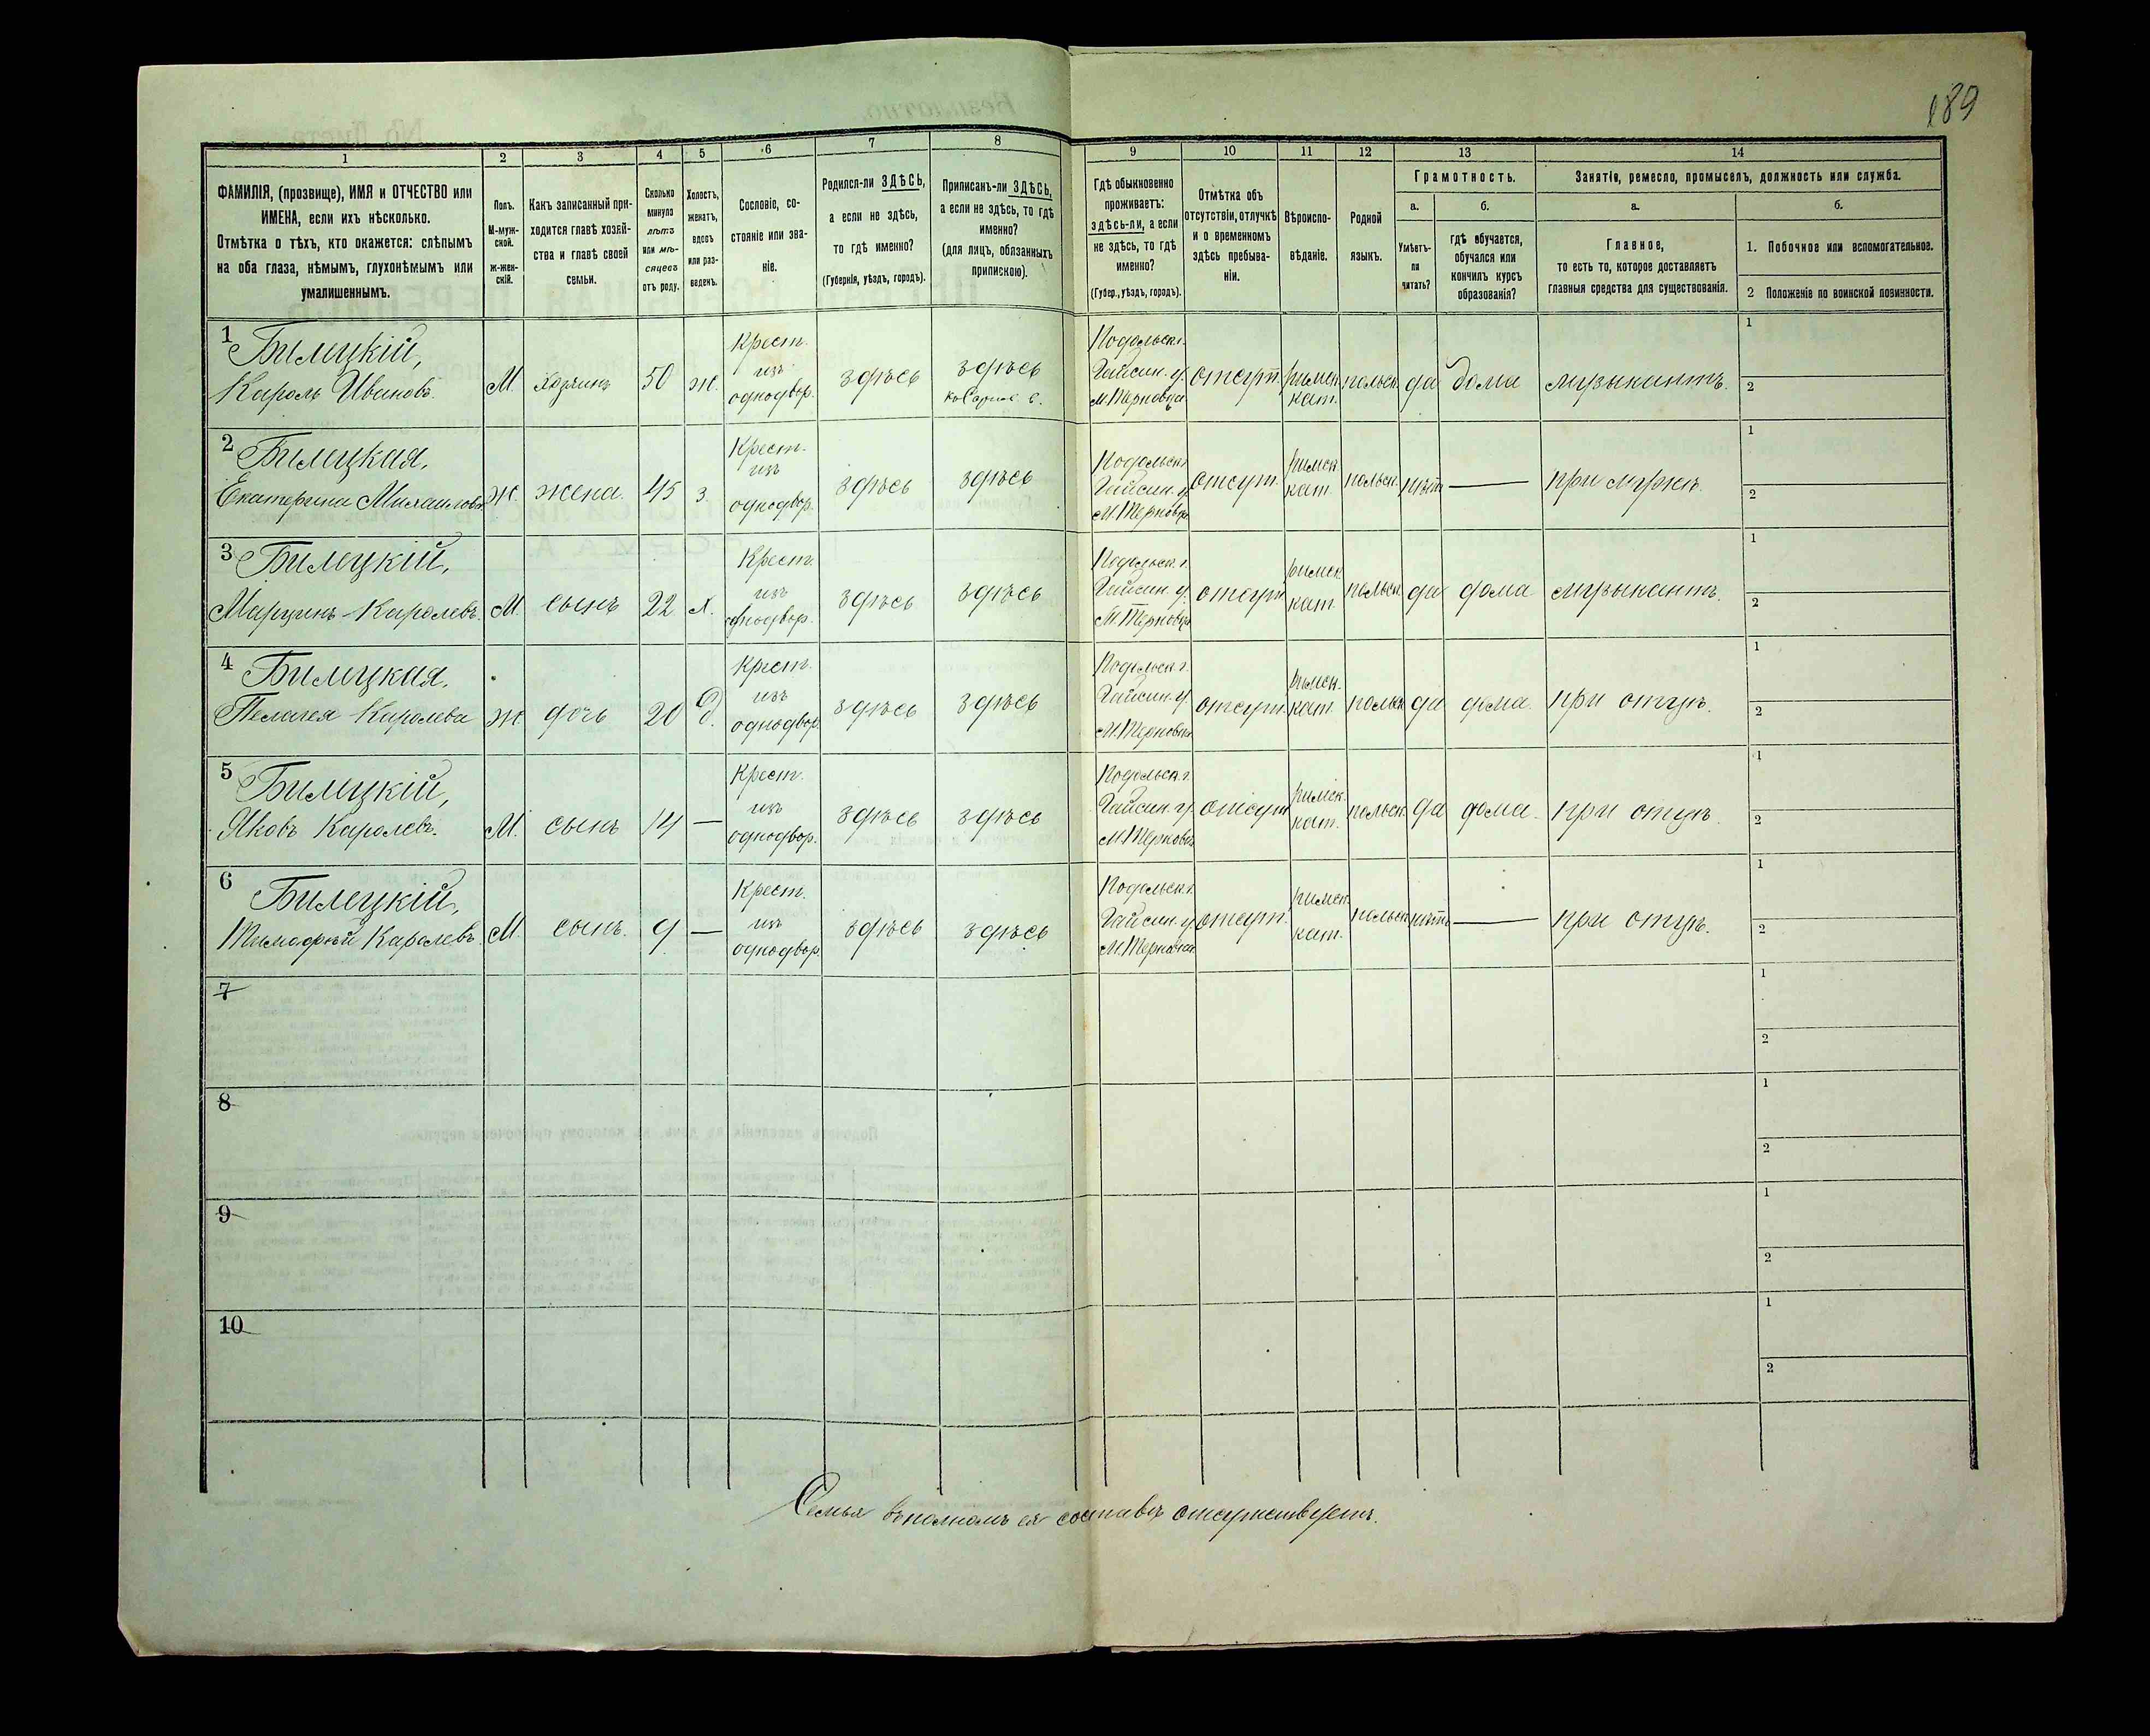 189
1 2 3 4 5 6 7 8 9 10 11 12 13 14
ФАМИЛІЯ, (прозвище), ИМЯ и ОТЧЕСТВО или
ИМЕНА, если ихъ нѣсколько.
Отмѣтка о тѣхъ, кто окажется: слѣпымъ
на оба глаза, нѣмымъ, глухонѣмымъ или
умалишеннымъ.
Полъ.
М-муж-
ской.
ж-жен-
скій.
Какъ записанный при-
ходится главѣ хозяй-
ства и главѣ своей
семьи.
Сколько
минуло
лѣтъ
или мѣ-
сяцевъ
отъ роду.
Холостъ,
женатъ,
вдовъ
или раз-
веденъ.
Сословіе, со-
стояніе или зва-
ніе.
Родился-ли ЗДѢСЬ,
а если не здѣсь,
то гдѣ именно?
(Губернія, уѣздъ, городъ).
Приписанъ-ли ЗДѢСЬ,
а если не здѣсь, то гдѣ
именно?
(для лицъ, обязанныхъ
припискою).
Гдѣ обыкновенно
проживаетъ:
здѣсь-ли, а если
не здѣсь, то гдѣ
именно?
(Губер., уѣздъ, городъ).
Отмѣтка объ
отсутствіи, отлучкѣ
и о временномъ
здѣсь пребыва-
ніи.
Вѣроиспо-
вѣданіе.
Родной
языкъ.
Грамотность.
а.
Умѣетъ-
ли
читать?
б.
гдѣ обучается,
обучался или
кончилъ курсъ
образованія?
Занятіе, ремесло, промыселъ, должность или служба.
а.
Главное,
то есть то, которое доставляетъ
главныя средства для существованія.
б.
1. Побочное или вспомогательное.
2 Положеніе по воинской повинности.
1 Билецкій,
Кароль Ивановъ.
М. хозяинъ 50 ж.
Крест.
изъ
однодвор.
здѣсь
здѣсь
Подольск.
Гайсин. у.
м. Терновка
отсут.
римск.
кат.
польск. да дома музыкантъ.
1
2
2 Билецкая,
Екатерина Михайлова
ж. жена. 45 з.
Крест.
изъ
однодвор.
здѣсь здѣсь
Подольск.
Гайсин. у.
М. Терновка
отсут.
римск.
кат.
польск. нѣтъ — при мужѣ.
1
2
3 Билецкій,
Марцинъ Каролевъ.
М. сынъ 22 х.
Крест.
изъ
однодвор.
здѣсь здѣсь
Подольск. г.
Гайсин. у.
М. Терновка
отсут.
римск.
кат.
польск. да дома музыкантъ.
1
2
4 Билецкая,
Пелагея Каролева
ж. дочь 20 д.
Крест.
изъ
однодвор.
здѣсь здѣсь
Подольск. г.
Гайсин. у.
М. Терновка
отсут.
римск.
кат.
польск. да дома. при отцѣ.
1
2
5 Билецкій,
Яковъ Каролевъ.
М. сынъ 14 —
Крест.
изъ
однодвор.
здѣсь здѣсь
Подольск. г.
Гайсин. у.
М. Терновка
отсут.
римск.
кат.
польск. да дома. при отцѣ.
1
2
6 Билецкій,
Тимофей Каролевъ.
М. сынъ. 9 —
Крест.
изъ
однодвор.
здѣсь здѣсь
Подольск. г.
Гайсин. у.
М. Терновка
отсут.
римск.
кат.
польск. нѣтъ — при отцѣ.
1
2
7
1
2
8
1
2
9
1
2
10
1
2
Семья въ полномъ ея составѣ отсутствуетъ.